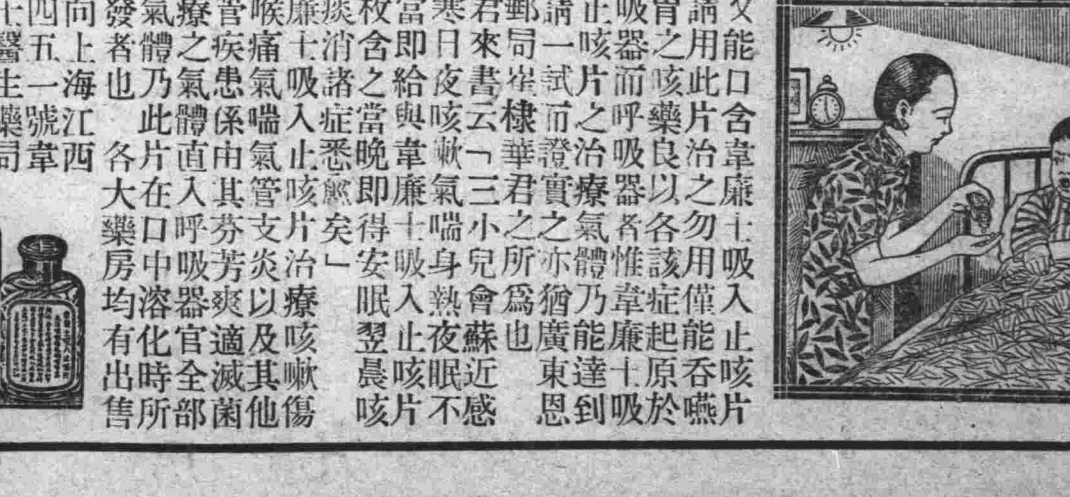 能口含韋廉士吸入止咳片
請用此片治之勿用僅能吞嚥
胃之咳藥良以各該症起原於
吸器而呼吸器者惟韋廉士吸
止咳片之治療氣體乃能達到
請一試而證實之亦猶廣東恩
郵局崔棣華君之所爲也
君來書云「三小兒會蘇近感
寒日夜咳嗽氣喘身熱夜眠不
當即給與韋廉士吸入止咳片
枚含之當晚即得安眠翌晨咳
痰消諸症悉愈矣」
廉士吸入止咳片治療咳嗽傷
喉痛氣喘氣管支炎以及其他
管疾患係由其芬芳爽適滅菌
療之氣體直入呼吸器官全部
氣體乃此片在口中溶化時所
發者也 各大藥房均有出售
向上海江西
四五一號韋
士醫生藥局